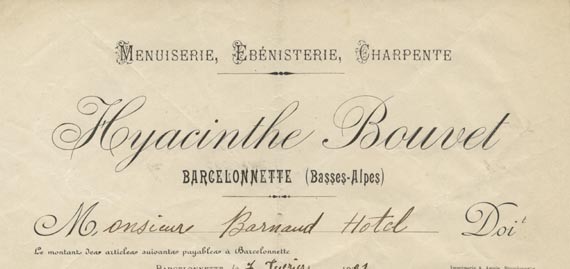 MENUISERIE, EBÉNISTERIE, CHARPENTE
Hyacinthe Bouvet
BARCELONNETTE (Basses-Alpes)
Monsieur Barnaud Hotel Doit
Le montant des articles suivants payables à Barcelonnette
BARCELONNETTE, le